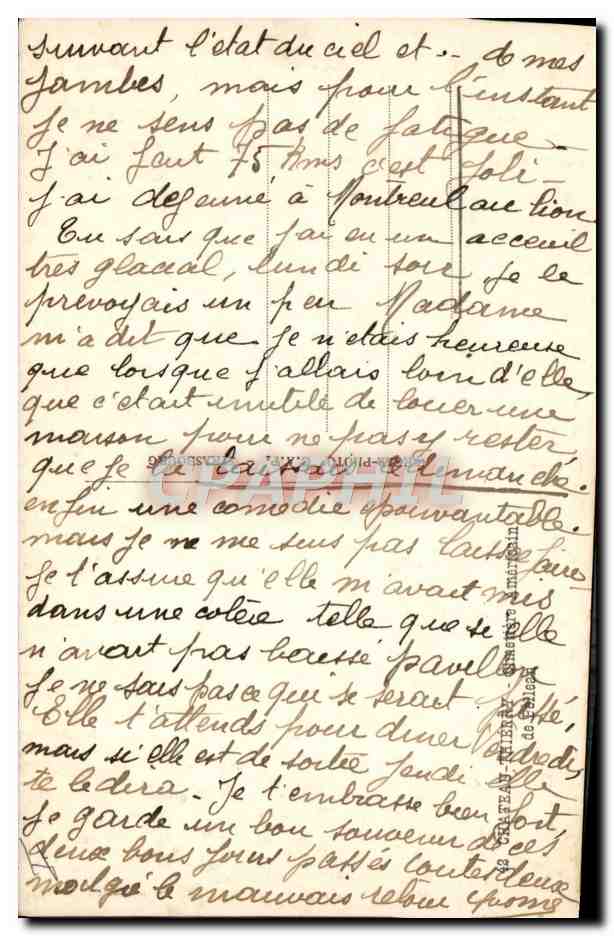 suivant l'état du ciel et .. de mes
jambes, mais pour l'instant
je ne sens pas de fatigue -
J'ai fait 75 Kms c'est joli -
j'ai dejeuné à Montreuil au lion
Tu sais que j'ai eu un acceuil
très glacial, lundi soir je le
prevoyais un peu Madame
m'a dit que je n'étais heureuse
que lorsque j'allais loin d'elle,
que c'était inutile de louer une
maison pour ne pas y rester,
que je la laissais le dimanche.
enfin une comedie epouvantable.
mais je ne me suis pas laissée faire
je t'assure qu'elle m'avait mis
dans une colère telle que si elle
n'avait pas baissé pavillon
je ne sais pas ce qui se serait passé,
Elle t'attends pour diner Vendredi,
mais si elle est de sortie jeudi elle
te le dira - Je t'embrasse bien fort,
je garde un bon souvenir de ces
deux bons jours passés toutes deux
malgré le mauvais retour Yvonne
42 CHATEAU-THIERRY Cimetière Américain
de Belleau
PHOTO C.A.P. STRASBOURG
CARPHIL